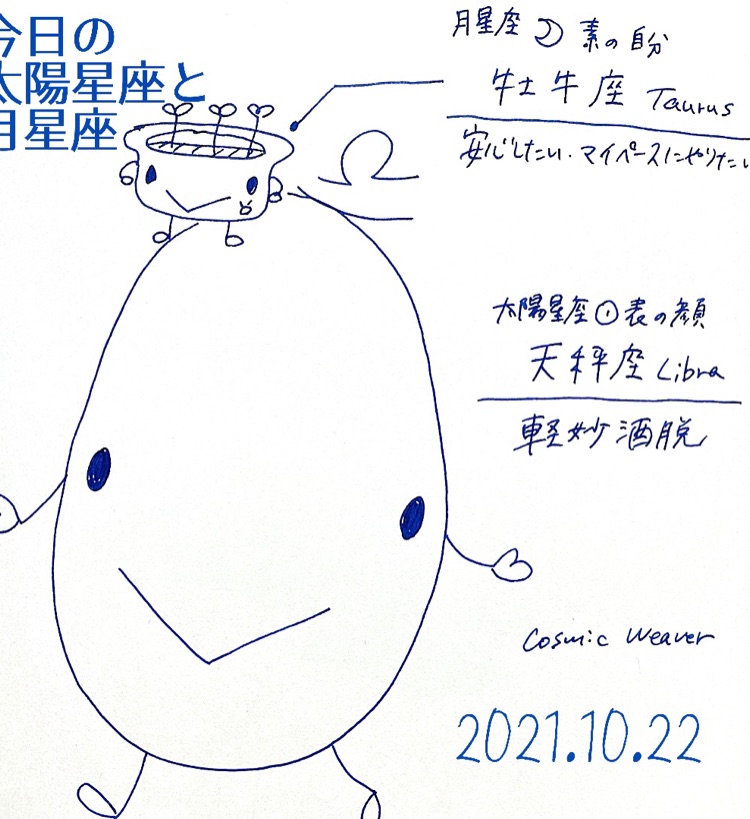 今日の
太陽星座と
月星座
月星座☽素の自分
牡牛座 Taurus
安心したい・マイペースにやりたい
太陽星座☉表の顔
天秤座 Libra
軽妙洒脱
Cosmic Weaver
2021.10.22